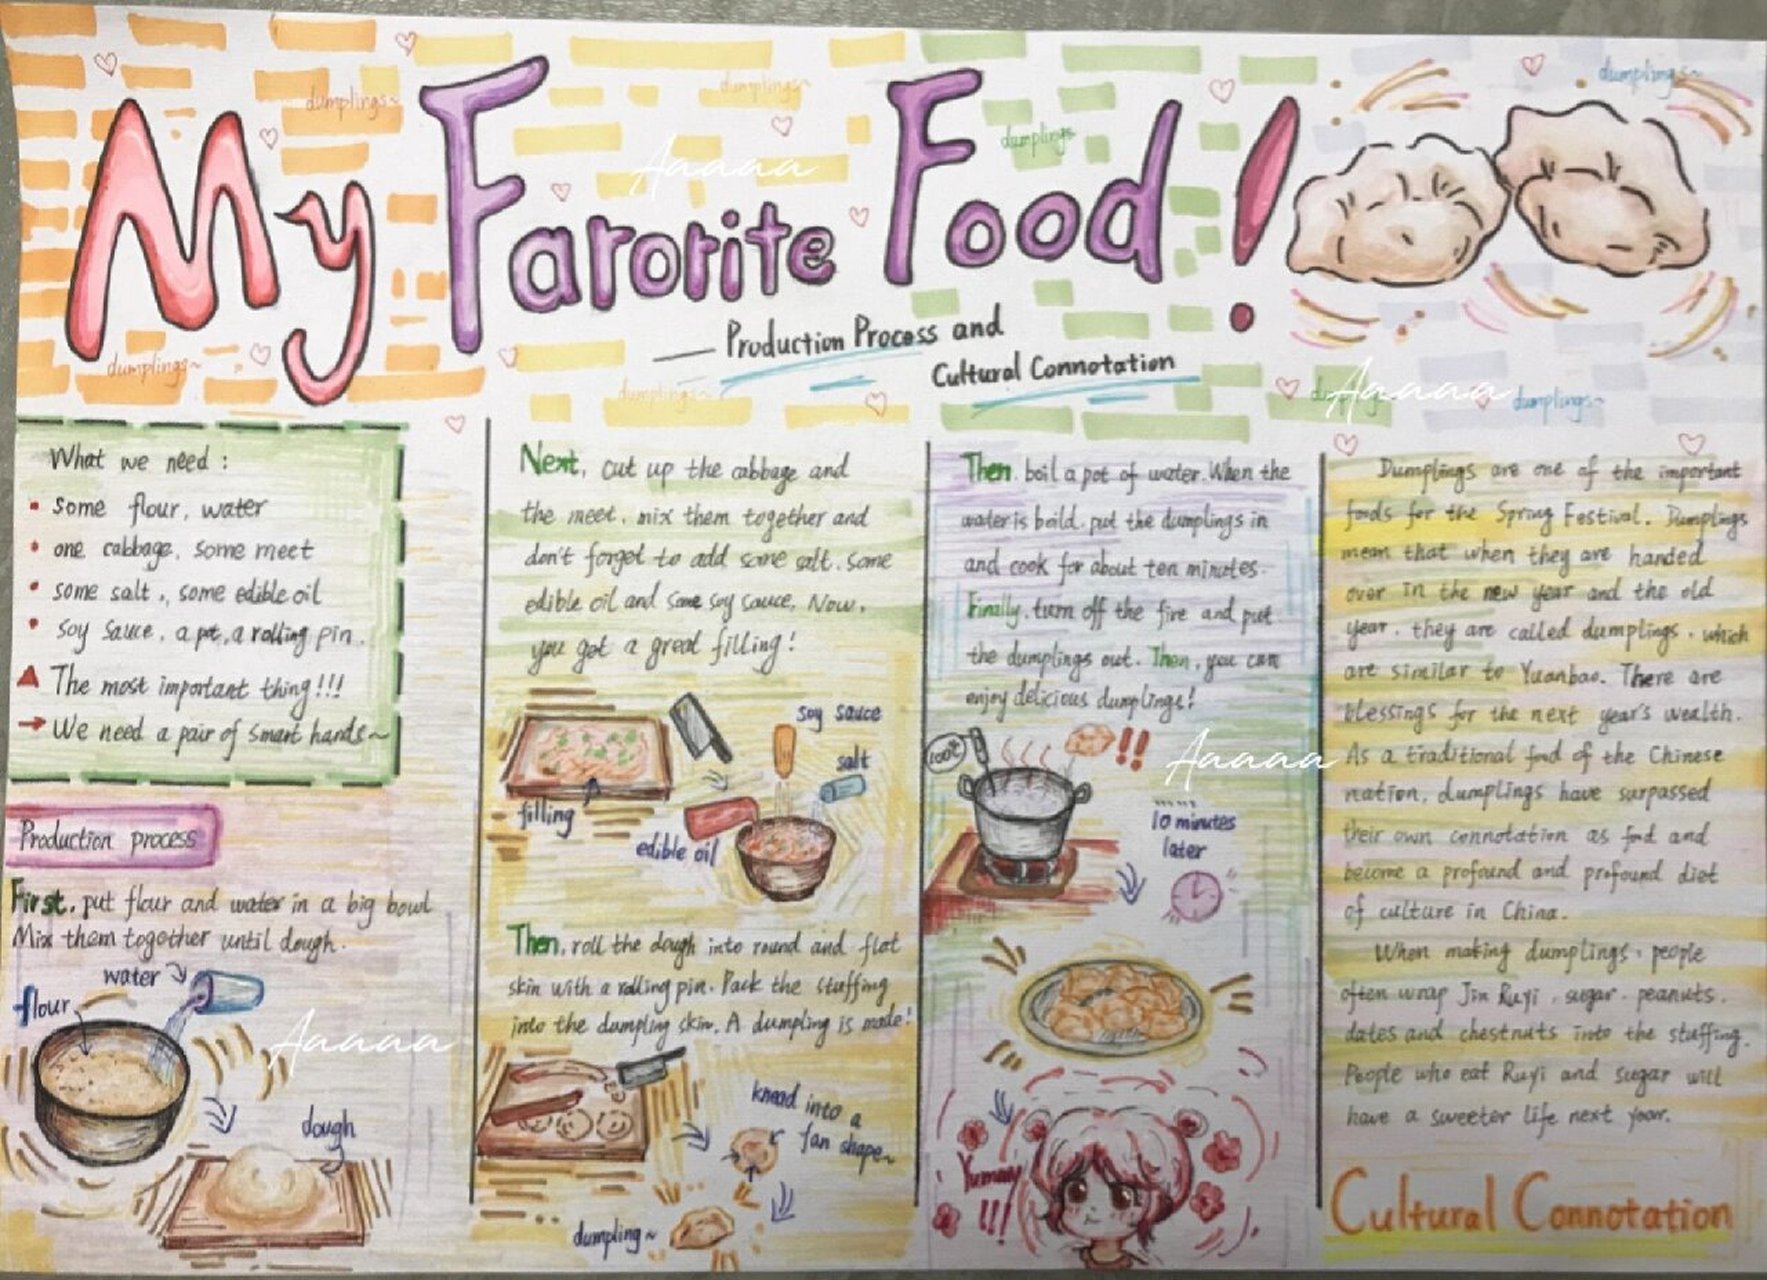 My Farorite Food!
— Production Process and
Cultural Connotation
dumplings~
dumplings~
dumplings
dumplings~
dumplings~
dumplings~
dumplings~
Aaaaa
Aaaaa
What we need:
some flour, water
one cabbage, some meet
some salt, some edible oil
soy sauce, a pot, a rolling pin.
The most important thing!!!
→ We need a pair of smart hands~
Production process
First, put flour and water in a big bowl
Mix them together until dough.
water
flour
Aaaaa
dough
Next, cut up the cabbage and
the meet, mix them together and
don't forget to add some salt, some
edible oil and some soy sauce. Now,
you get a great filling!
soy sauce
salt
filling
edible oil
Then, roll the dough into round and flat
skin with a rolling pin. Pack the stuffing
into the dumpling skin. A dumpling is made!
knead into a
fan shape~
dumpling~
Then, boil a pot of water. When the
water is boild, put the dumplings in
and cook for about ten minutes.
Finally, turn off the fire and put
the dumplings out. Then, you can
enjoy delicious dumplings!
100℃
!!
Aaaaa
10 minutes
later
Yummy
!!!
Dumplings are one of the important
foods for the Spring Festival. Dumplings
mean that when they are handed
over in the new year and the old
year, they are called dumplings, which
are similar to Yuanbao. There are
blessings for the next year's wealth.
As a traditional food of the Chinese
nation, dumplings have surpassed
their own connotation as food and
become a profound and profound diet
of culture in China.
When making dumplings, people
often wrap Jin Ruyi, sugar, peanuts,
dates and chestnuts into the stuffing.
People who eat Ruyi and sugar will
have a sweeter life next year.
Cultural Connotation